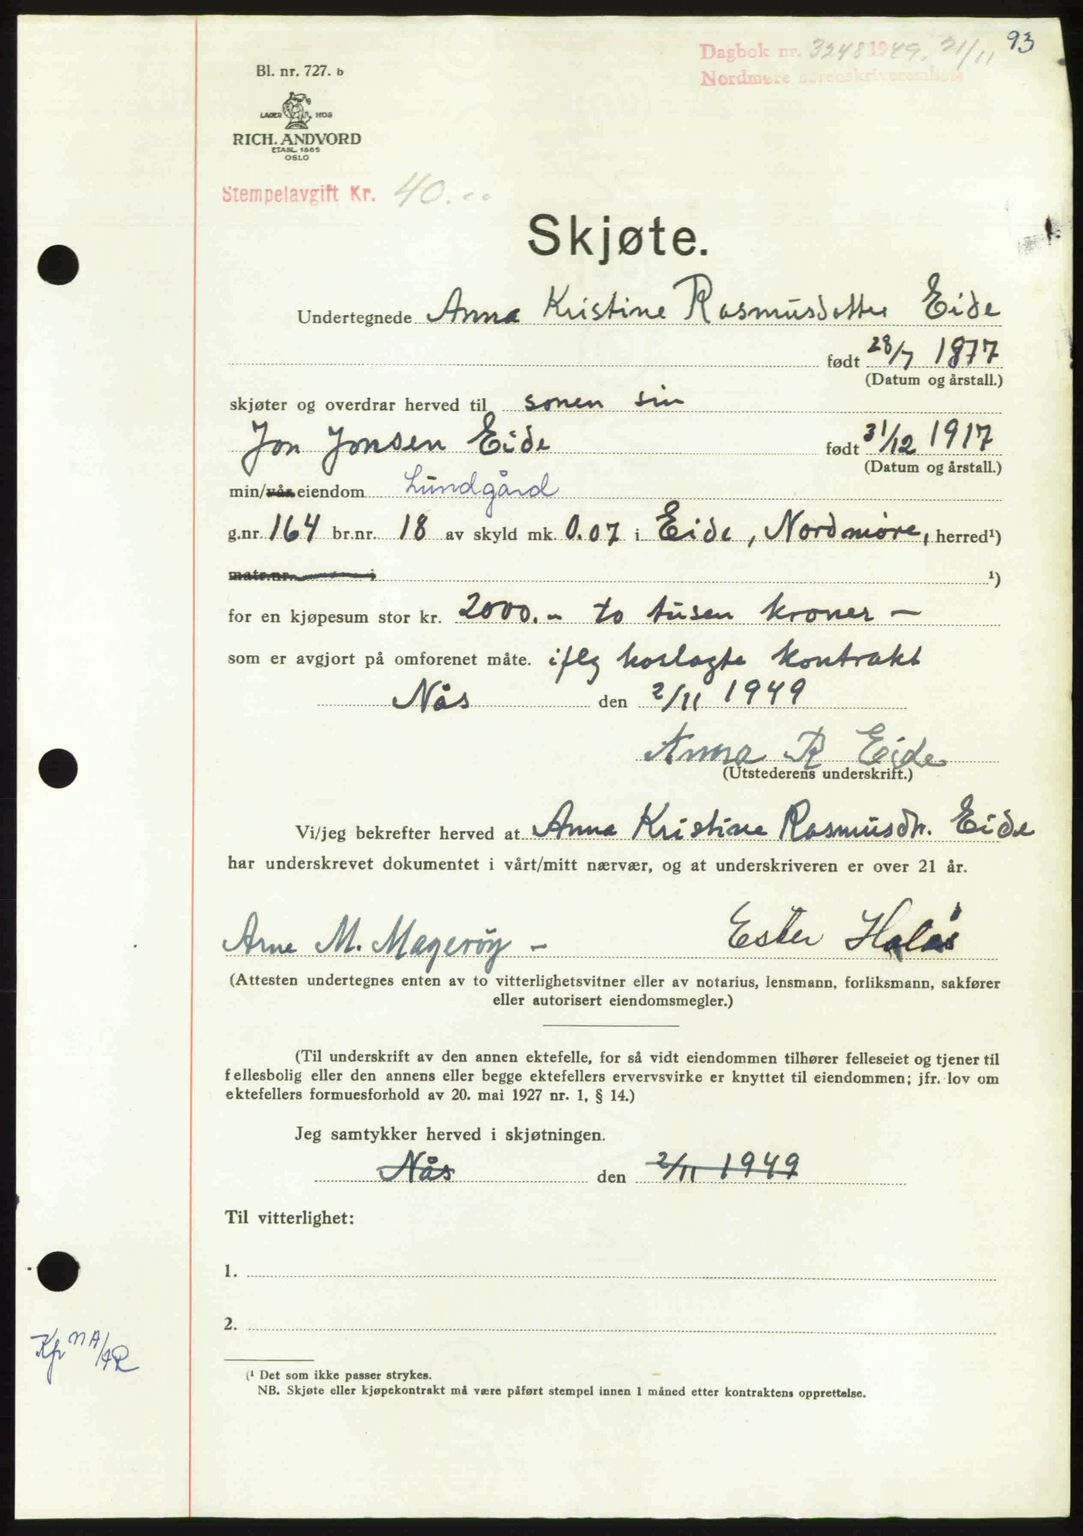 93
Dagbok nr. 3248 1949. 21/11
Nordmøre sorenskriverembete
Bl. nr. 727. b
LAGER HOS
RICH. ANDVORD
ETABL. 1865
OSLO
Stempelavgift Kr. 40.--
Skjøte.
Undertegnede Anna Kristine Rasmusdatter Eide
født 28/7 1877
(Datum og årstall.)
skjøter og overdrar herved til sonen sin
Jon Jonsen Eide født 31/12 1917
(Datum og årstall.)
min/vår eiendom Lundgård
g.nr. 164 br.nr. 18 av skyld mk. 0.07 i Eide, Nordmøre, herred¹)
matr.nr. i ¹)
for en kjøpesum stor kr. 2000.- to tusen kroner -
som er avgjort på omforenet måte. iflg koslagte kontrakt
Nås den 2/11 1949
Anna R Eide
(Utstederens underskrift.)
Vi/jeg bekrefter herved at Anna Kristine Rasmusdtr. Eide
har underskrevet dokumentet i vårt/mitt nærvær, og at underskriveren er over 21 år.
Arne M. Magerøy - Ester Halås
(Attesten undertegnes enten av to vitterlighetsvitner eller av notarius, lensmann, forliksmann, sakfører
eller autorisert eiendomsmegler.)
(Til underskrift av den annen ektefelle, for så vidt eiendommen tilhører felleseiet og tjener til
fellesbolig eller den annens eller begge ektefellers ervervsvirke er knyttet til eiendommen; jfr. lov om
ektefellers formuesforhold av 20. mai 1927 nr. 1, § 14.)
Jeg samtykker herved i skjøtningen.
Nås den 2/11 1949
Til vitterlighet:
1.
2.
(¹ Det som ikke passer strykes.
NB. Skjøte eller kjøpekontrakt må være påført stempel innen 1 måned etter kontraktens opprettelse.